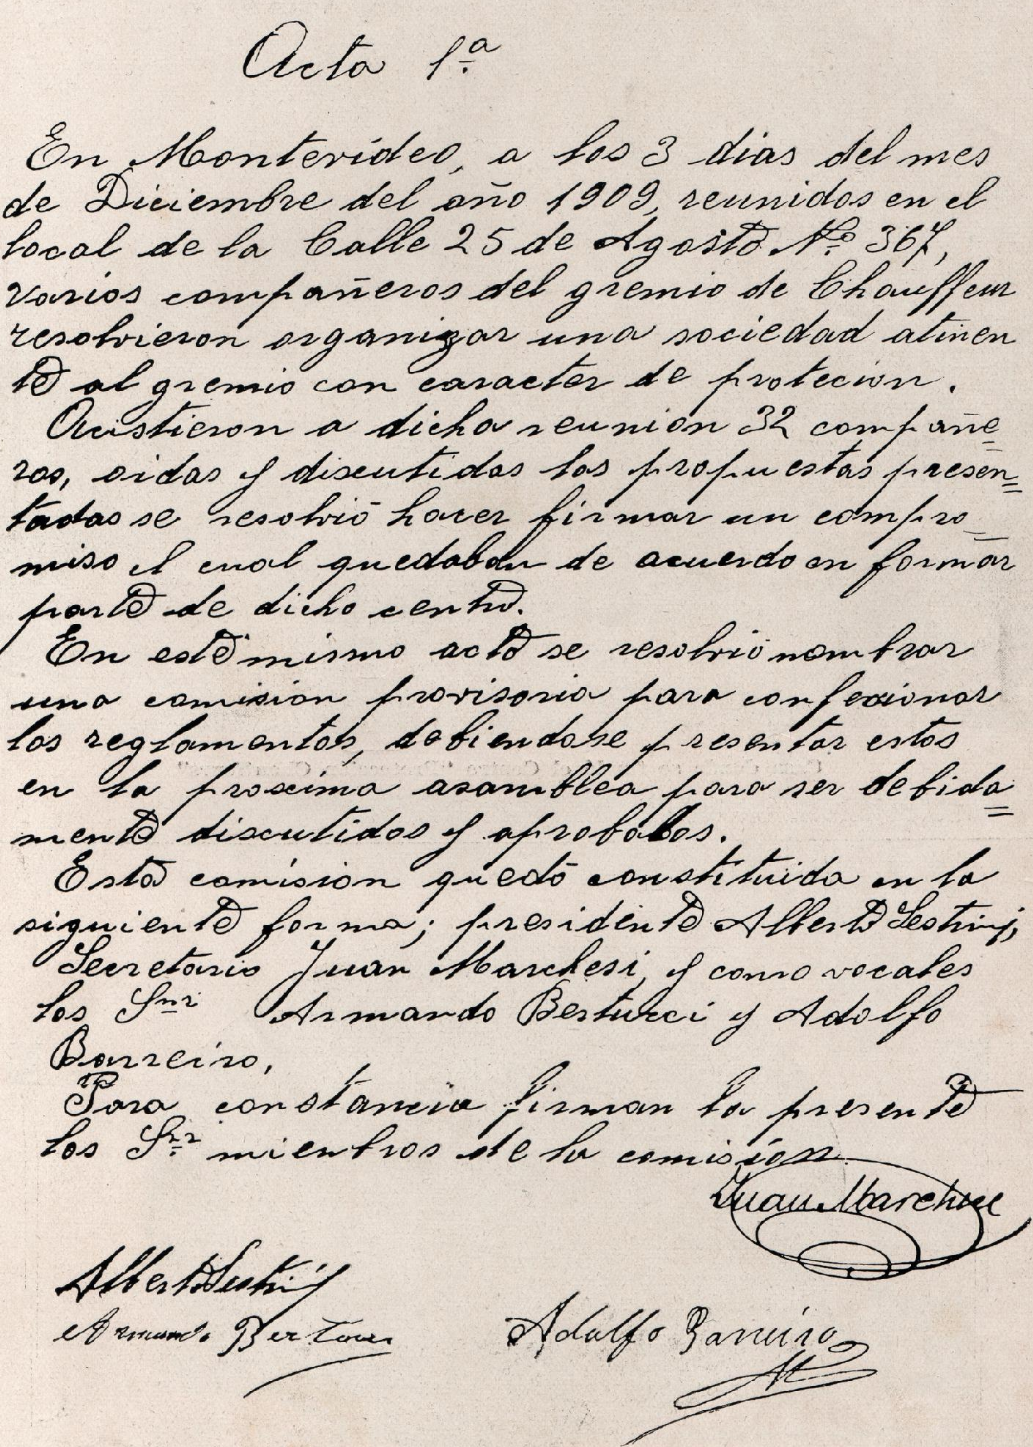 Acta 1ª
En Montevideo, a los 3 dias del mes
de Diciembre del año 1909, reunidos en el
local de la Calle 25 de Agosto Nº 367,
varios compañeros del gremio de Chauffeur
resolvieron organizar una sociedad atinen
te al gremio con caracter de protecion.
Asistieron a dicha reunion 32 compañe=
ros, oidas y discutidas las propuestas presen=
tadas se resolvió hacer firmar un compro=
miso el cual quedaban de acuerdo en formar
parte de dicho centro.
En este mismo acto se resolvió nombrar
una comision provisoria para confexionar
los reglamentos, debiendose presentar estos
en la proxima asamblea para ser debida=
mente discutidos y aprobados.
Esta comision quedó constituida en la
siguiente forma; presidente Alberto Sestrij,
Secretario Juan Marchesi, y como vocales
los Snr Armando Bertucci y Adolfo
Barreiro,
Para constancia firman la presente
los Sr miembros de la comision.
Juan Marchesi
Alberto Sestrij
Armando
Adolfo Barreiro